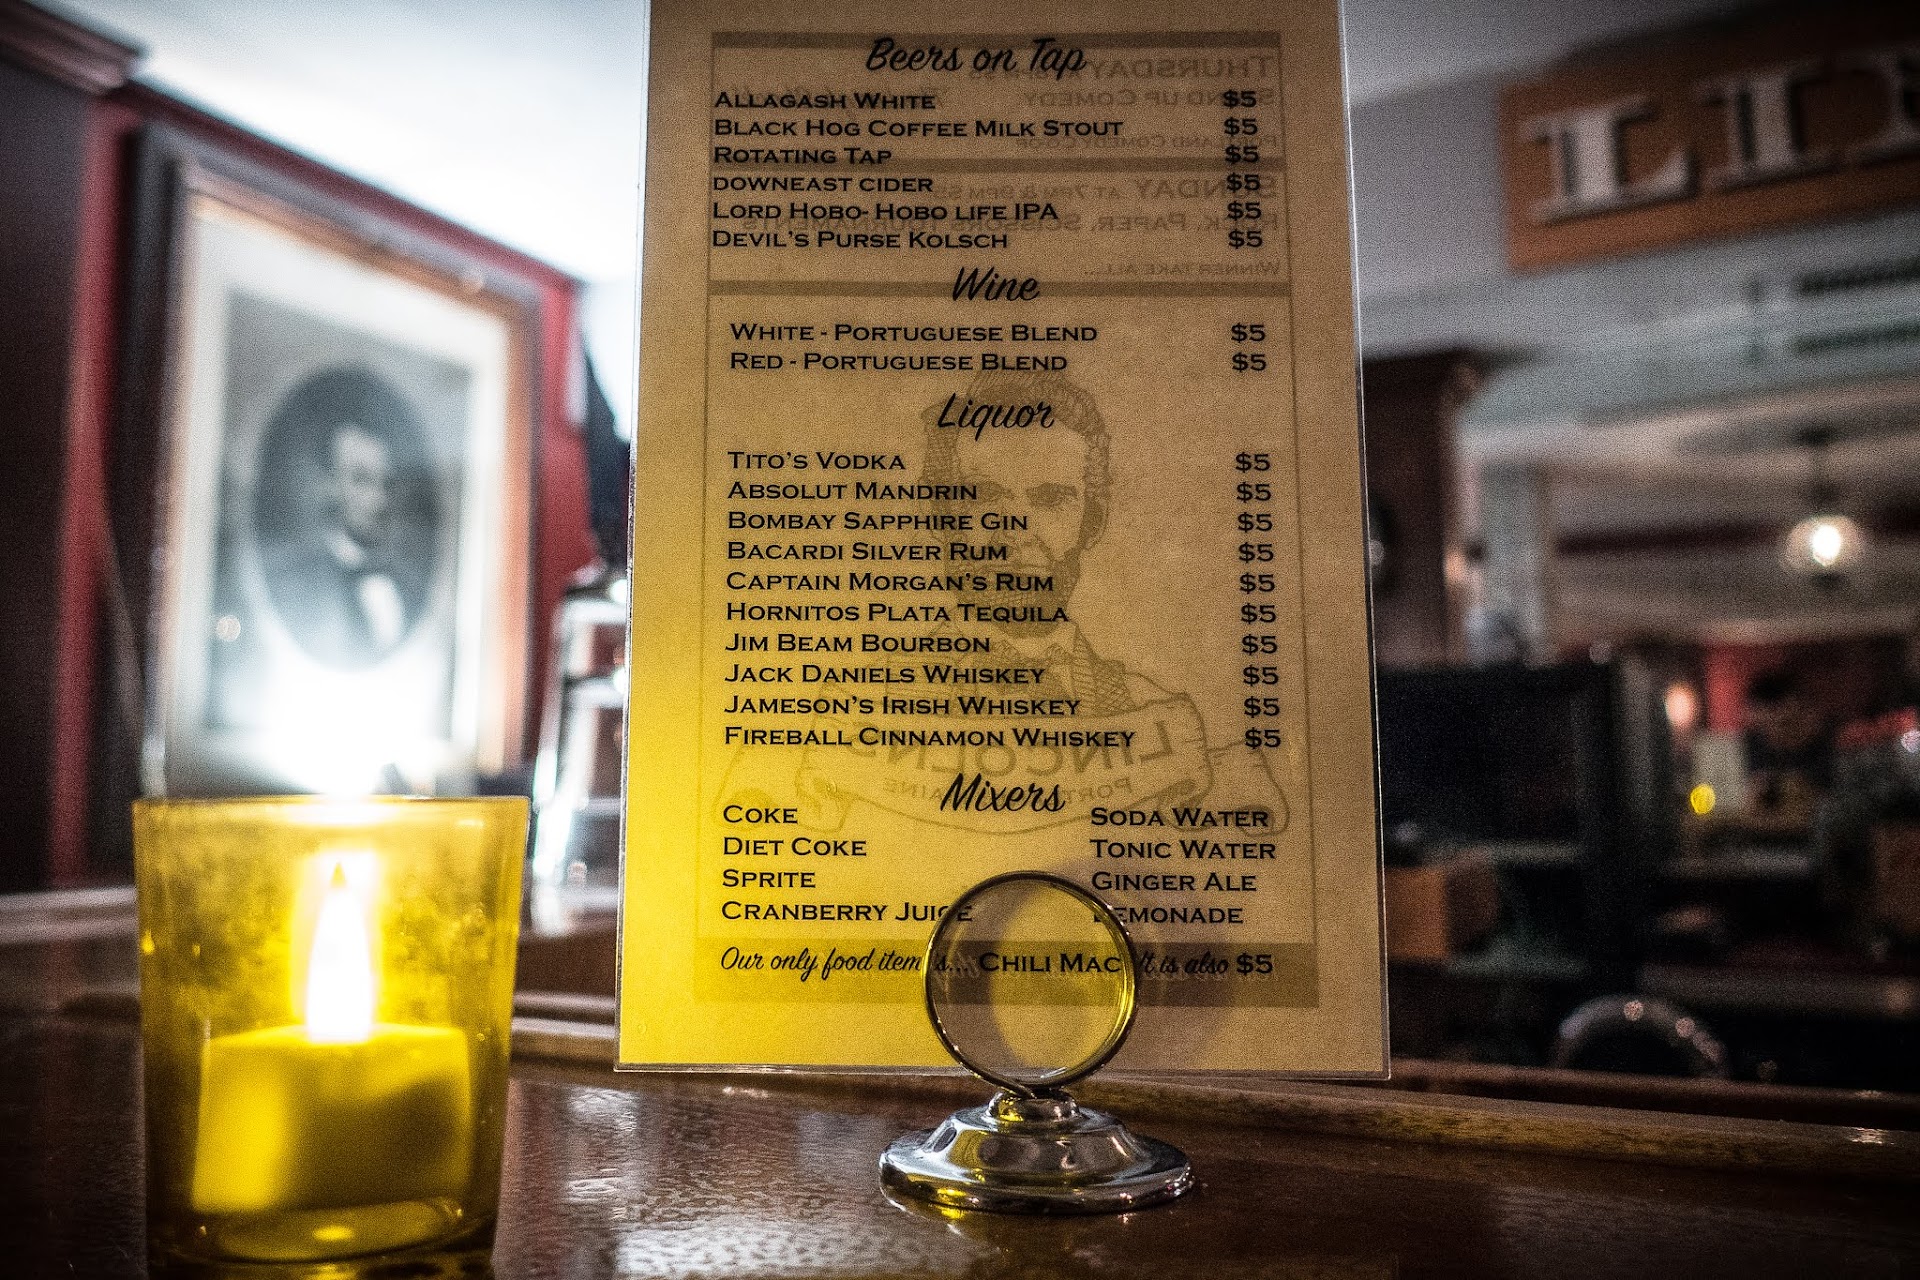 Beers on Tap
ALLAGASH WHITE $5
BLACK HOG COFFEE MILK STOUT $5
ROTATING TAP $5
DOWNEAST CIDER $5
LORD HOBO- HOBO LIFE IPA $5
DEVIL'S PURSE KOLSCH $5
Wine
WHITE - PORTUGUESE BLEND $5
RED - PORTUGUESE BLEND $5
Liquor
TITO'S VODKA $5
ABSOLUT MANDRIN $5
BOMBAY SAPPHIRE GIN $5
BACARDI SILVER RUM $5
CAPTAIN MORGAN'S RUM $5
HORNITOS PLATA TEQUILA $5
JIM BEAM BOURBON $5
JACK DANIELS WHISKEY $5
JAMESON'S IRISH WHISKEY $5
FIREBALL CINNAMON WHISKEY $5
LINCOLN'S
Mixers
COKE SODA WATER
DIET COKE TONIC WATER
SPRITE GINGER ALE
CRANBERRY JUICE LEMONADE
Our only food item is... CHILI MAC It is also $5